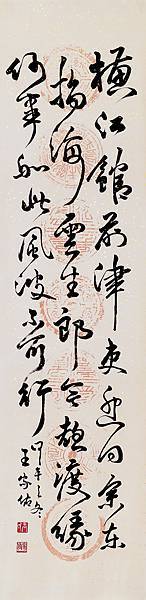 橫江館前津吏迎向余東
指海雲生郎今欲渡緣
何事如此風波不可行
甲午之冬